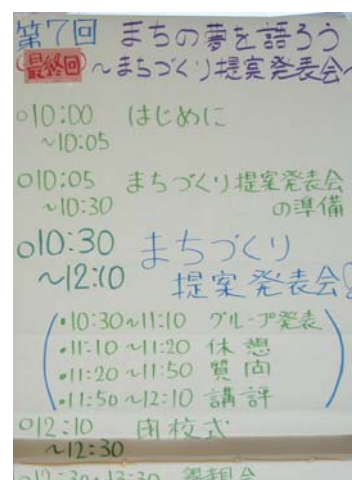 第7回 まちの夢を語ろう
最終回 ～まちづくり提案発表会～
○10:00 はじめに
～10:05
○10:05 まちづくり提案発表会
～10:30 の準備
○10:30 まちづくり
～12:10 提案発表会
・10:30～11:10 グループ発表
・11:10～11:20 休憩
・11:20～11:50 質問
・11:50～12:10 講評
○12:10 閉校式
～12:30
○12:30～13:30 懇親会